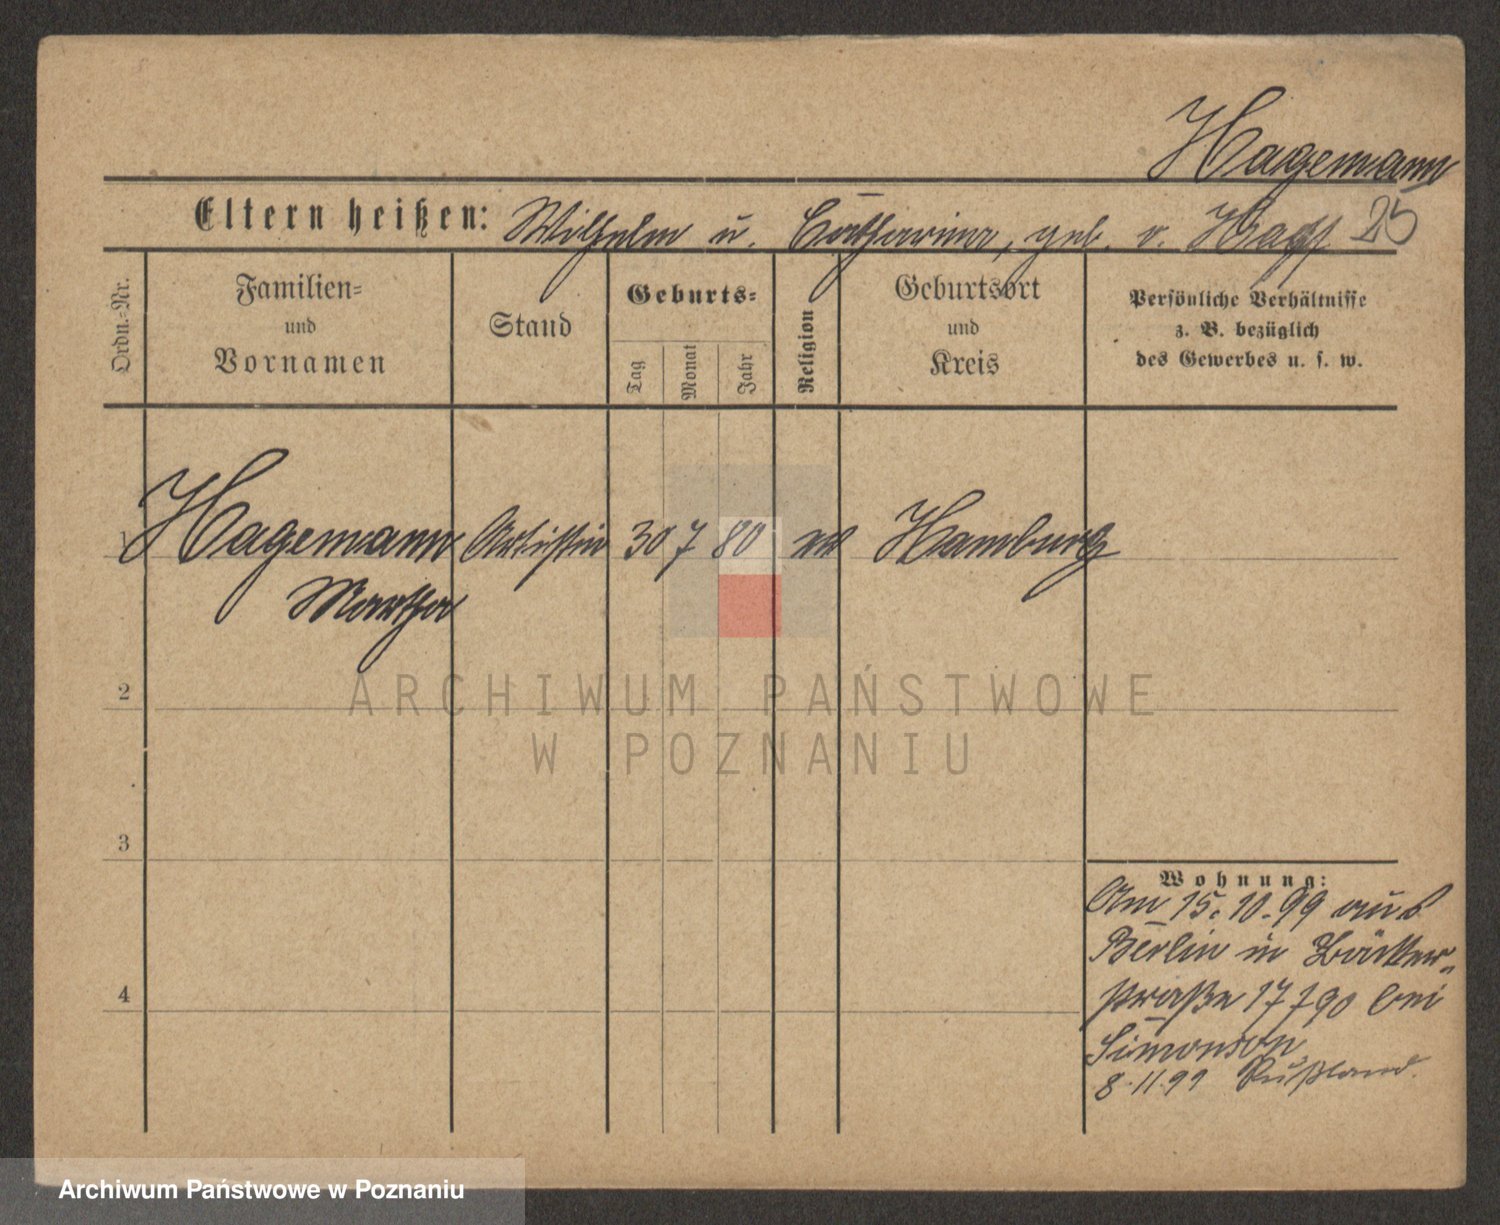 Hagemann
Eltern heißen: Wilhelm u. Catharina, geb. v. 25
Ordn.-Nr.
Familien-
und
Vornamen
Stand
Geburts-
Tag
Monat
Jahr
Religion
Geburtsort
und
Kreis
Persönliche Verhältnisse
z. B. bezüglich
des Gewerbes u. s. w.
1 Hagemann Artistin 30 7 80 ev Hamburg
Martha
2
ARCHIWUM PAŃSTWOWE
W POZNANIU
3
Wohnung:
Am 15.10.99 aus
Berlin in Bäcker-
4
straße 17 bei
Simonson
8.11.99 Rußland.
Archiwum Państwowe w Poznaniu